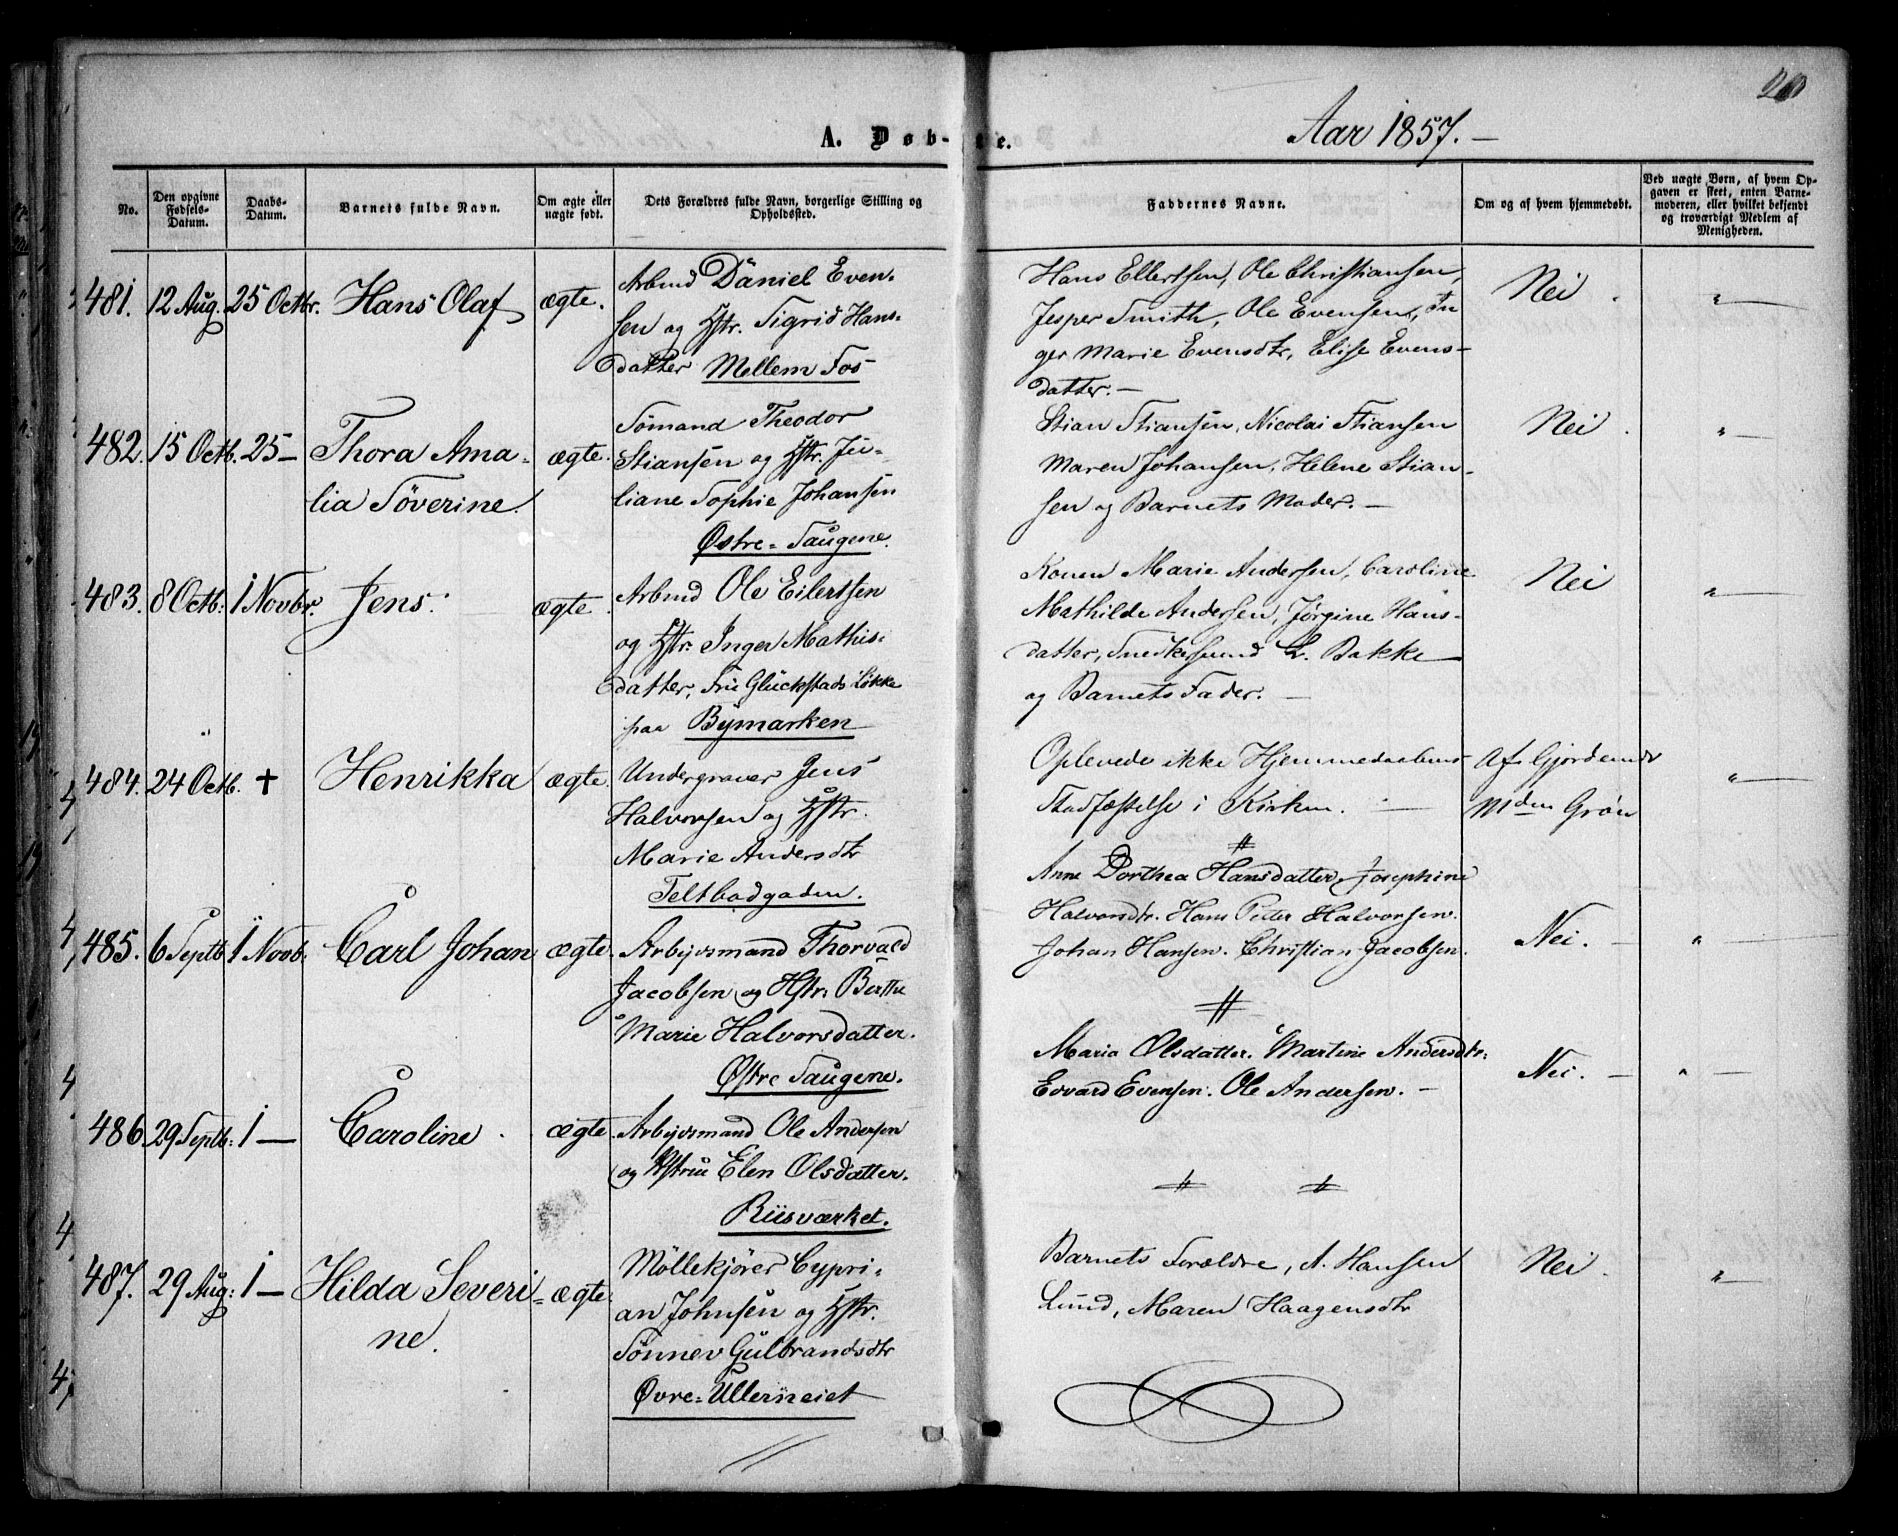 20
Aar 1857.–
A. Døb-te.
No.
Den opgivne Fødsels-Datum.
Daabs-Datum.
Barnets fulde Navn.
Om ægte eller uægte født.
Dets Forældres fulde Navn, borgerlige Stilling og Opholdssted.
Faddernes Navne.
Om og af hvem hjemmedøbt.
Ved uægte Børn, af hvem Opgaven er skeet, enten Barnemoderen, eller hvilket bekjendt og troværdigt Medlem af Menigheden.
481. 12 Aug. 25 Octbr. Hans Olaf ægte.
Arbmd Daniel Even-
sen og Hstr. Sigrid Hans-
datter Mellem Fos
Hans Ellertsen, Ole Christiansen,
Jesper Smith, Ole Evensen, In
ger Marie Evensdtr, Elise Evens-
datter.–
Nei
"–
482. 15 Octb. 25– Thora Ama-
lia Söverine. ægte.
Sömand Theodor
Stiansen og Hstr. Ju-
liane Sophie Johansen
Østre-Saugene.
Stian Stiansen, Nicolai Stiansen
Maren Johansen, Helene Stian-
sen og Barnets Moder.–
Nei.
"–
483. 8 Octb: 1 Novbr. Jens. ægte.
Arbmd Ole Eilertsen
og Hstr. Inger Mathis-
datter, Glückstads Løkke
paa Bymarken
Konen Marie Andersen, Caroline
Mathilde Andersen, Jørgine Hans-
datter, Snedkersvend L. Bakke
og Barnets Fader.–
Nei
"–
484. 24 Octb. + Henrikka ægte.
Undergraver Jens
Halvorsen og Hstr.
Marie Andersdtr
Teltbodgaden.
Oplevede ikke Hjemmedaabens
Stadfæstelse i Kirken.–
Af Gjordemdr
Mden Grön
"–
485. 6 Septb 1 Novb. Carl Johan ægte.
Arbejdsmand Thorvald
Jacobsen og Hstr. Berthe
Marie Halvorsdatter.
Østre Saugene.
Anne Dorthea Hansdatter, Josephine
Halvorsdtr. Hans Peter Halvorsen.
Johan Hansen. Christian Jacobsen.
Nei.–
"–
486. 29 Septb: 1– Caroline. ægte.
Arbejdsmand Ole Andersen
og Hstru Elen Olsdatter.
Riisværket.
Maria Olsdatter. Martine Andersdtr:
Edvard Evensen. Ole Andersen.–
Nei.–
"–
487. 29 Aug: 1– Hilda Severi-
ne. ægte.
Möllekjører Cypri-
an Johnsen og Hstr.
Sönnev Gulbrandsdtr
Øvre-Ullerneiet
Barnets Forældre, A. Hansen
Lund, Maren Haagensdtr
Nei.
"–